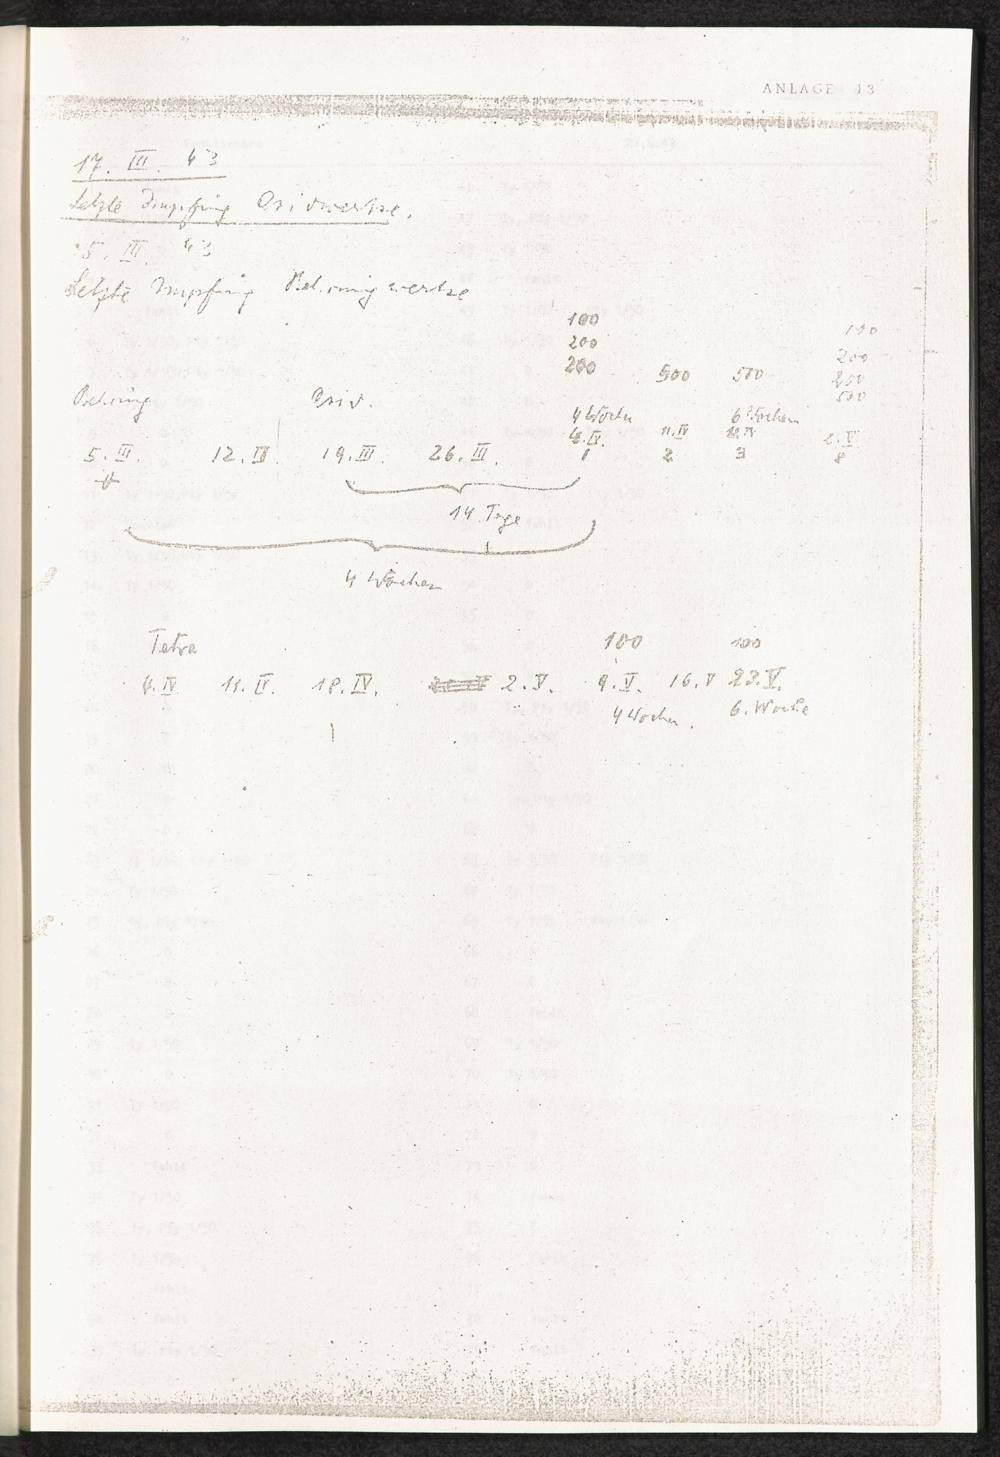 ANLAGE 13
17. III. 43
Letzte Impfung Asidwerke.
5. III. 43
Letzte Impfung Behringwerke
100 100
200 200
200 500 500 200
500
Behring Asid.
4 Wochen 6 Wochen
4. IV. 11. IV 18. IV 2. V
5. III. 12. III. 19. III. 26. III. 1 2 3 8
14 Tage
4 Wochen
Tetra 100 100
4. IV 11. IV. 18. IV. 2. V. 9. V. 16. V 23. V.
4 Wochen. 6. Woche